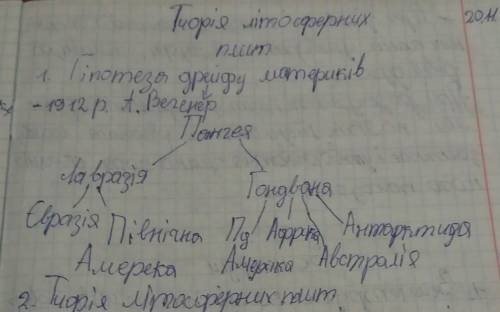 Тиорія літосферних 20.11.
плит
1. Гіпотеза дрейфу материків
- 1912 р. А. Вегенер
Пангея
Лавразія Гондвана
Євразія Північна Пд Африка Антарктида
Америка Америка Австралія
2. Тиорія літосферних плит